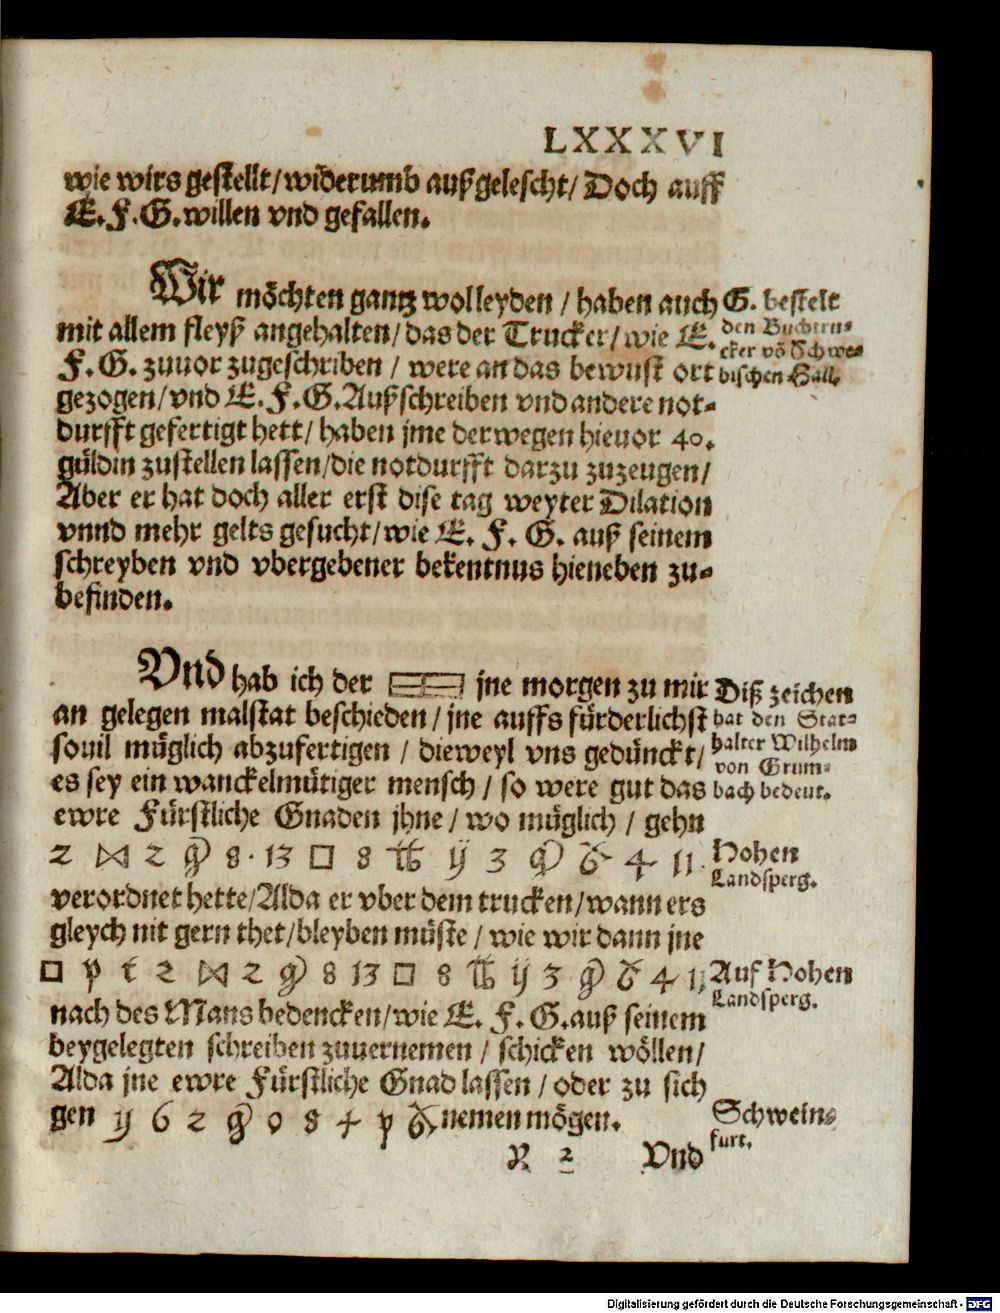 LXXXVI
wie wirs gestellt/widerumb außgelescht/ Doch auff
E. F. G. willen vnd gefallen.
Wir möchten gantz wolleyden / haben auch
mit allem fleyß angehalten/ das der Trucker/ wie E.
F. G. zuuor zugeschriben / were an das bewust ort
gezogen/ vnd E. F. G. Außschreiben vnd andere not-
durfft gefertigt hett/ haben jme derwegen hieuor 40.
guldin zustellen lassen/die notdurfft darzu zuzeugen/
Aber er hat doch aller erst dise tag weyter Dilation
vnnd mehr gelts gesucht/ wie E. F. G. auß seinem
schreyben vnd vbergebener bekentnus hieneben zu-
befinden.
G. bestelt
den Buchtru-
cker võ Schwe-
bischen Hall.
Vnd hab ich der jne morgen zu mir
an gelegen malstat beschieden / jne auffs fürderlichst
souil müglich abzufertigen / dieweyl vns gedünckt/
es sey ein wanckelmütiger mensch / so were gut das
ewre Fürstliche Gnaden jhne / wo müglich / gehn
Diß zeichen
hat den Stat-
halter Wilhelm
von Grum-
bach bedeut.
2 ⋈ 2 8. 13 □ 8 ij 3 4 11.
Hohen
Landsperg.
verordnet hette/ Alda er vber dem trucken/ wann ers
gleych nit gern thet/bleyben müste / wie wir dann jne
□ p t 2 ⋈ 2 8 13 □ 8 ij 3 4 11
Auf Hohen
Landsperg.
nach des Mans bedencken/ wie E. F. G. auß seinem
beygelegten schreiben zuuernemen / schicken wöllen/
Alda jne ewre Fürstliche Gnad lassen / oder zu sich
gen ij 6 2 0 8 4 p nemen mögen.
Schwein-
furt.
2 Vnd
Digitalisierung gefördert durch die Deutsche Forschungsgemeinschaft - DFG